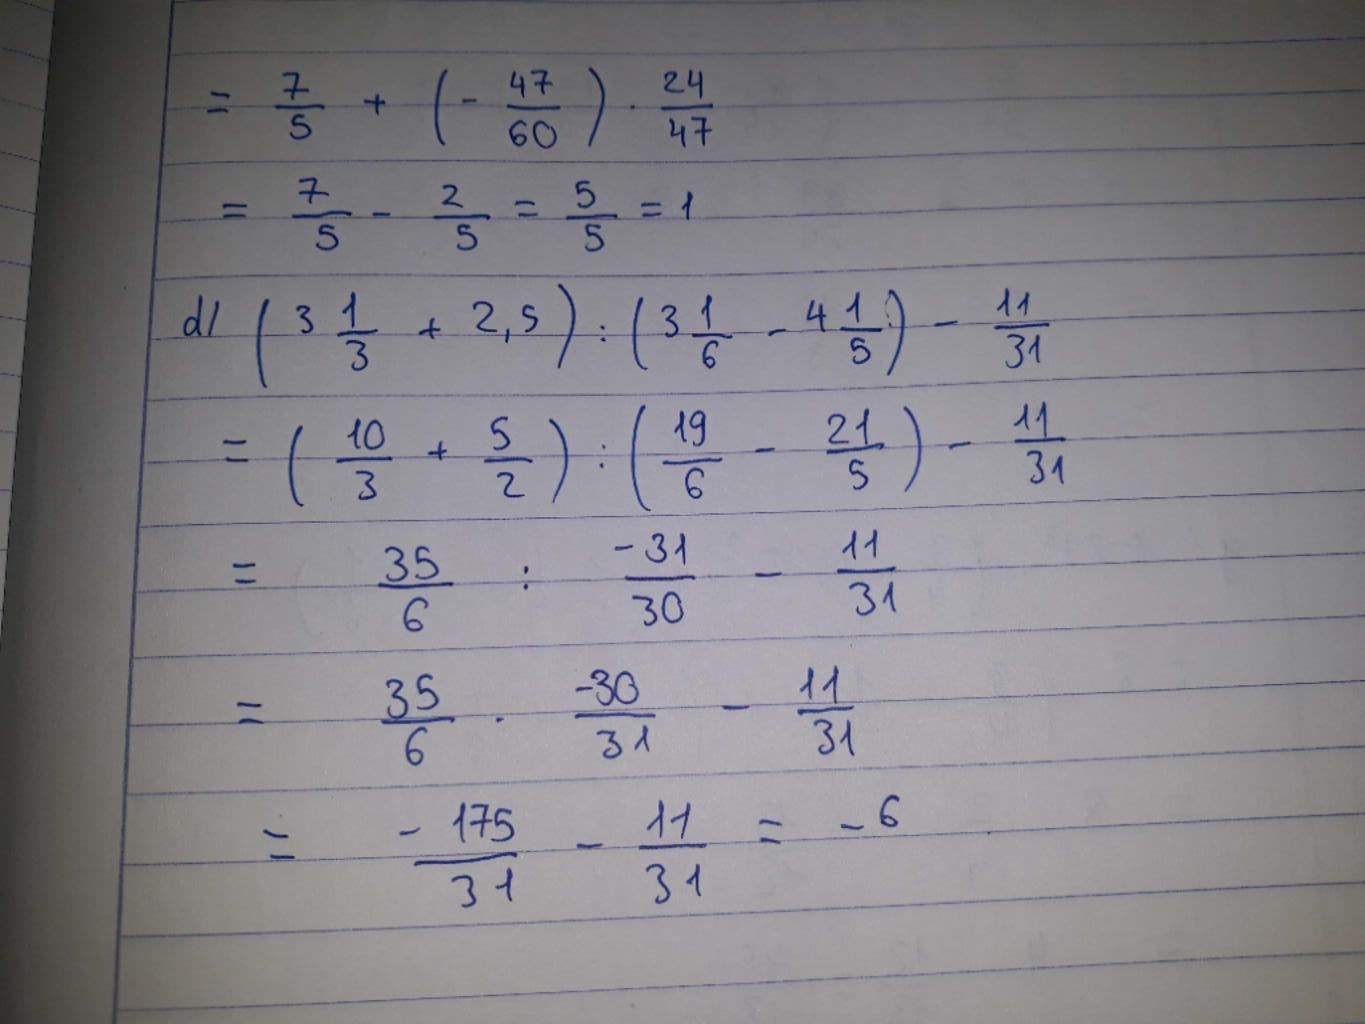 = 7/5 + (- 47/60) . 24/47
= 7/5 - 2/5 = 5/5 = 1
d/ (3 1/3 + 2,5) : (3 1/6 - 4 1/5) - 11/31
= (10/3 + 5/2) : (19/6 - 21/5) - 11/31
= 35/6 : -31/30 - 11/31
= 35/6 . -30/31 - 11/31
= - 175/31 - 11/31 = - 6